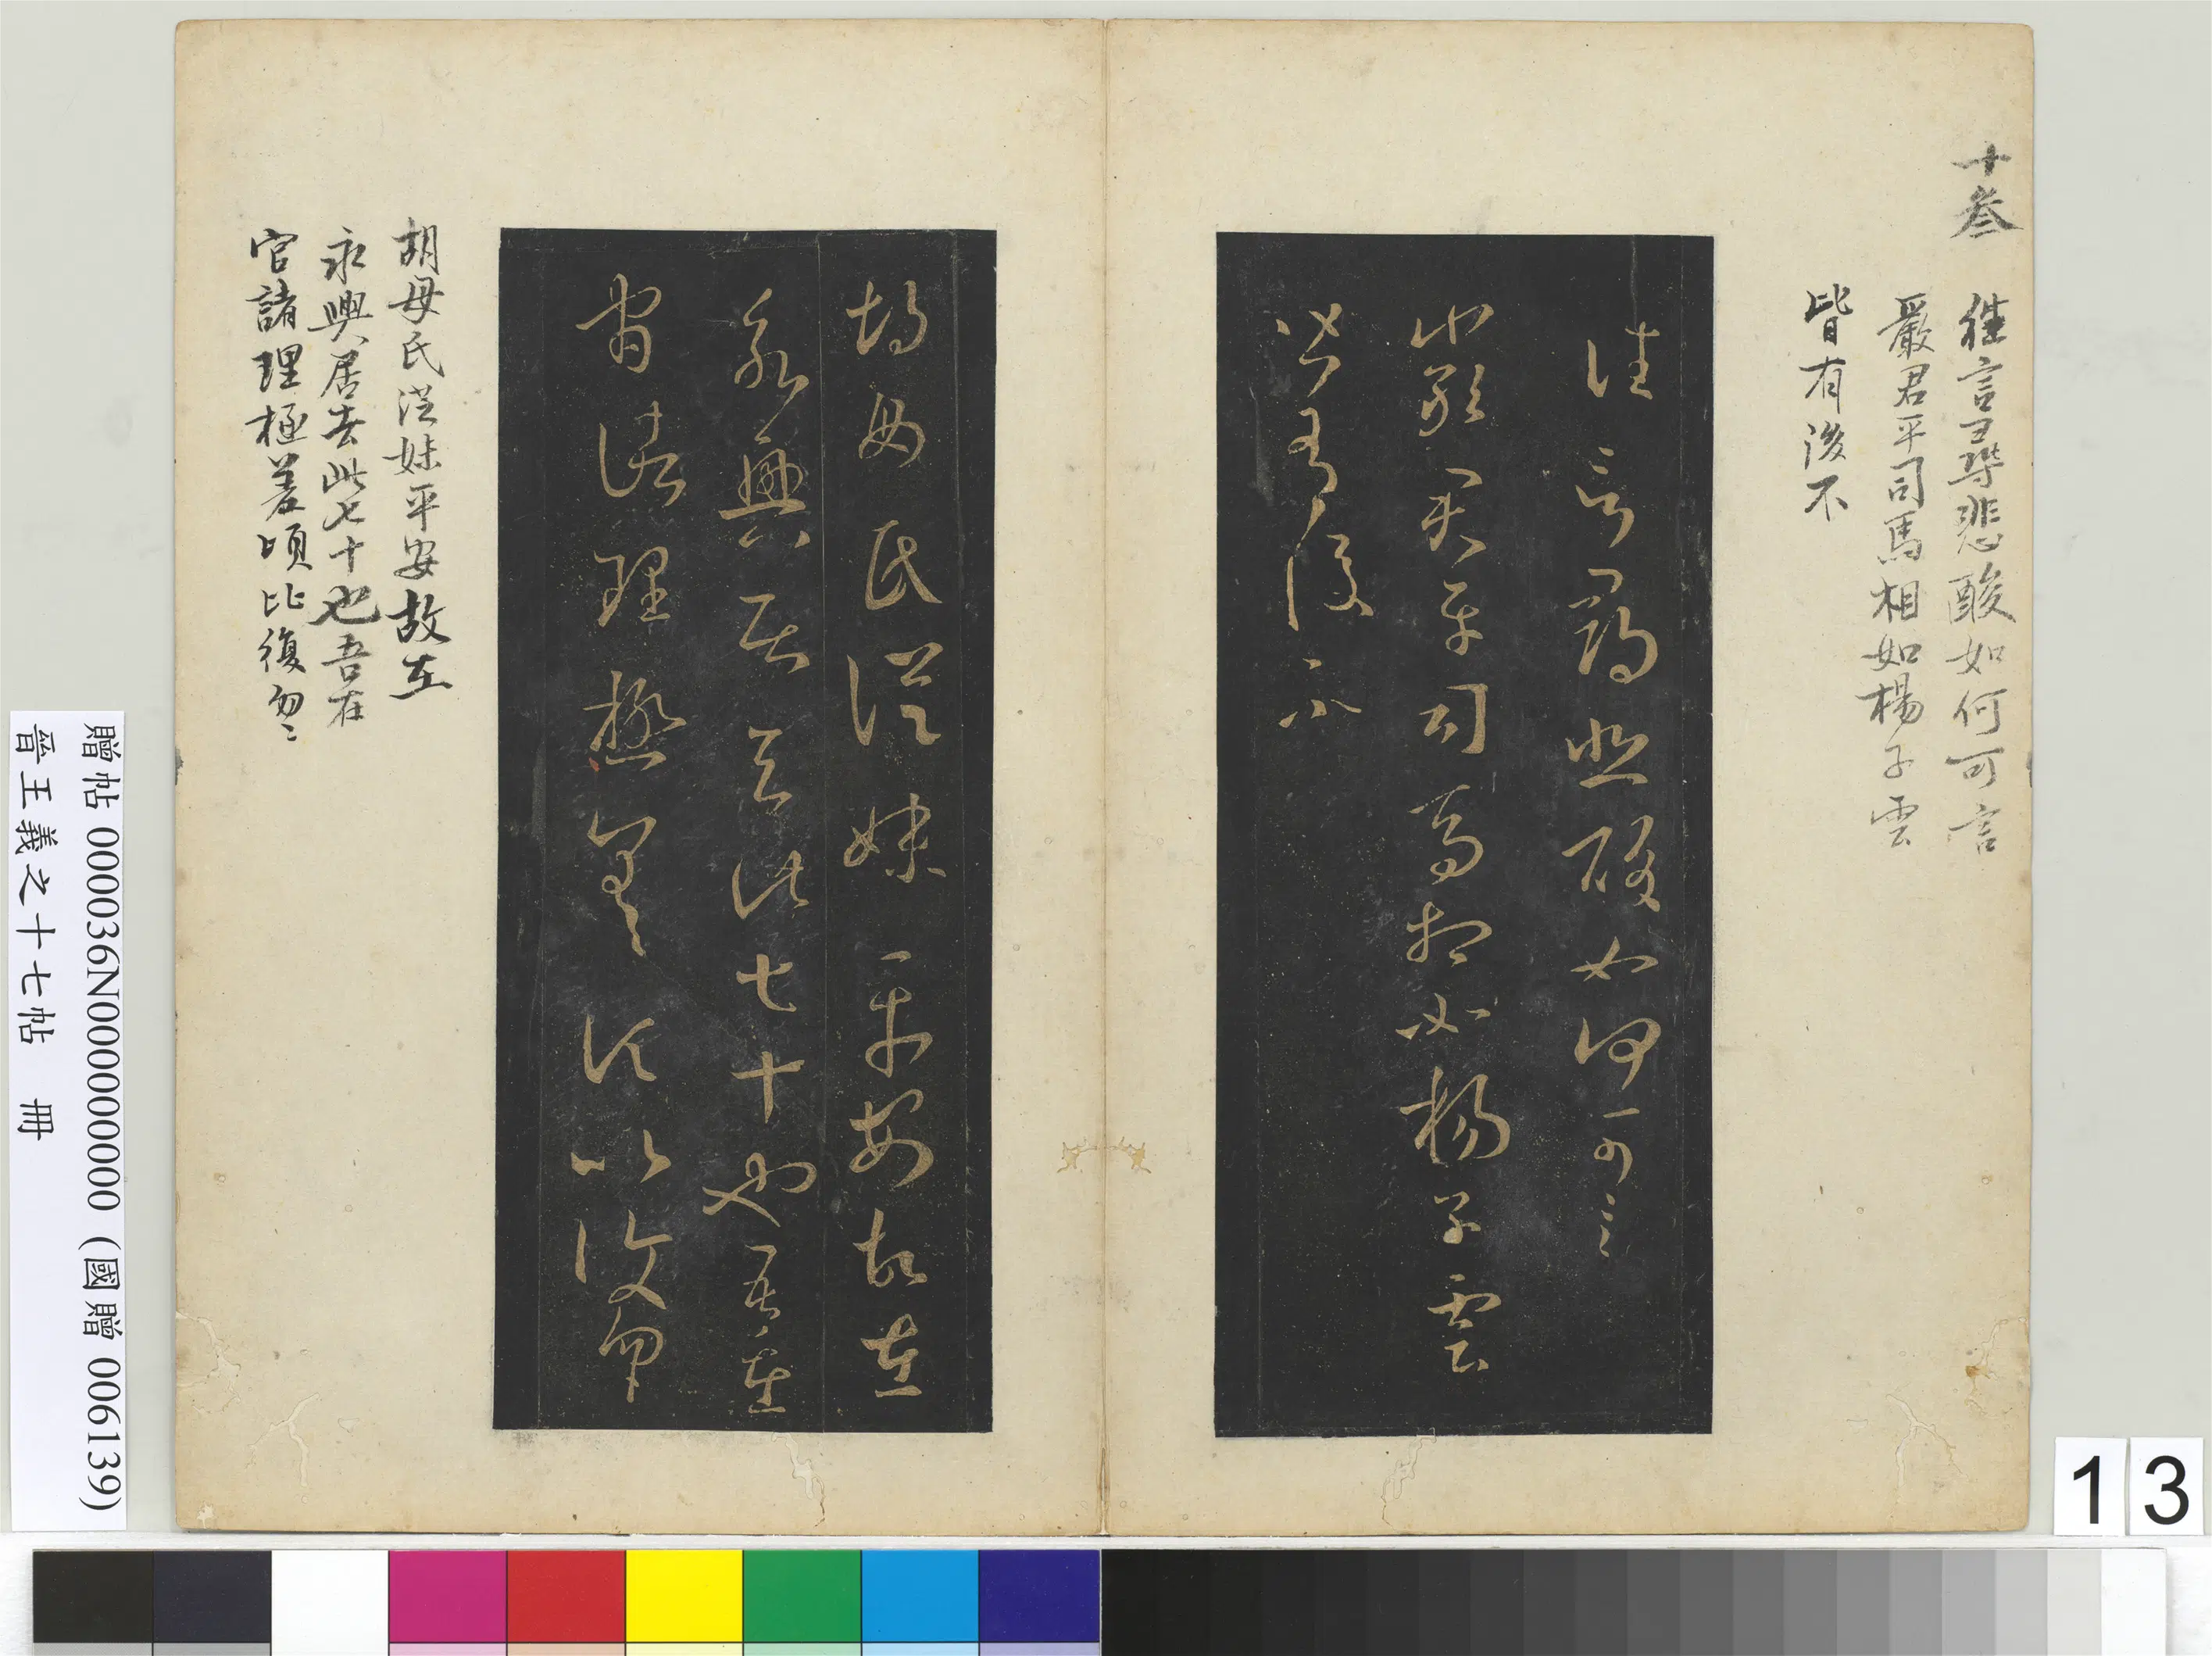 十叁
徃言尋悲酸如何可言
嚴君平司馬相如楊子雲
皆有後不
往言尋悲酸如何可言
嚴君平司馬相如楊子雲
皆有後不
胡母氏從妹平安故在
永興居去此七十也吾在
官諸理極差頃比復勿
胡母氏從妹平安故在
永興居去此七十也吾在
官諸理極差頃比復勿〻
贈帖 000036N000000000 (國贈 006139)
晉王羲之十七帖 冊
13